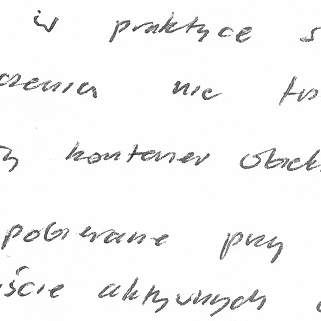 w praktyce s
czenia nie
y kontener
pobierane przy
ście aktywnych